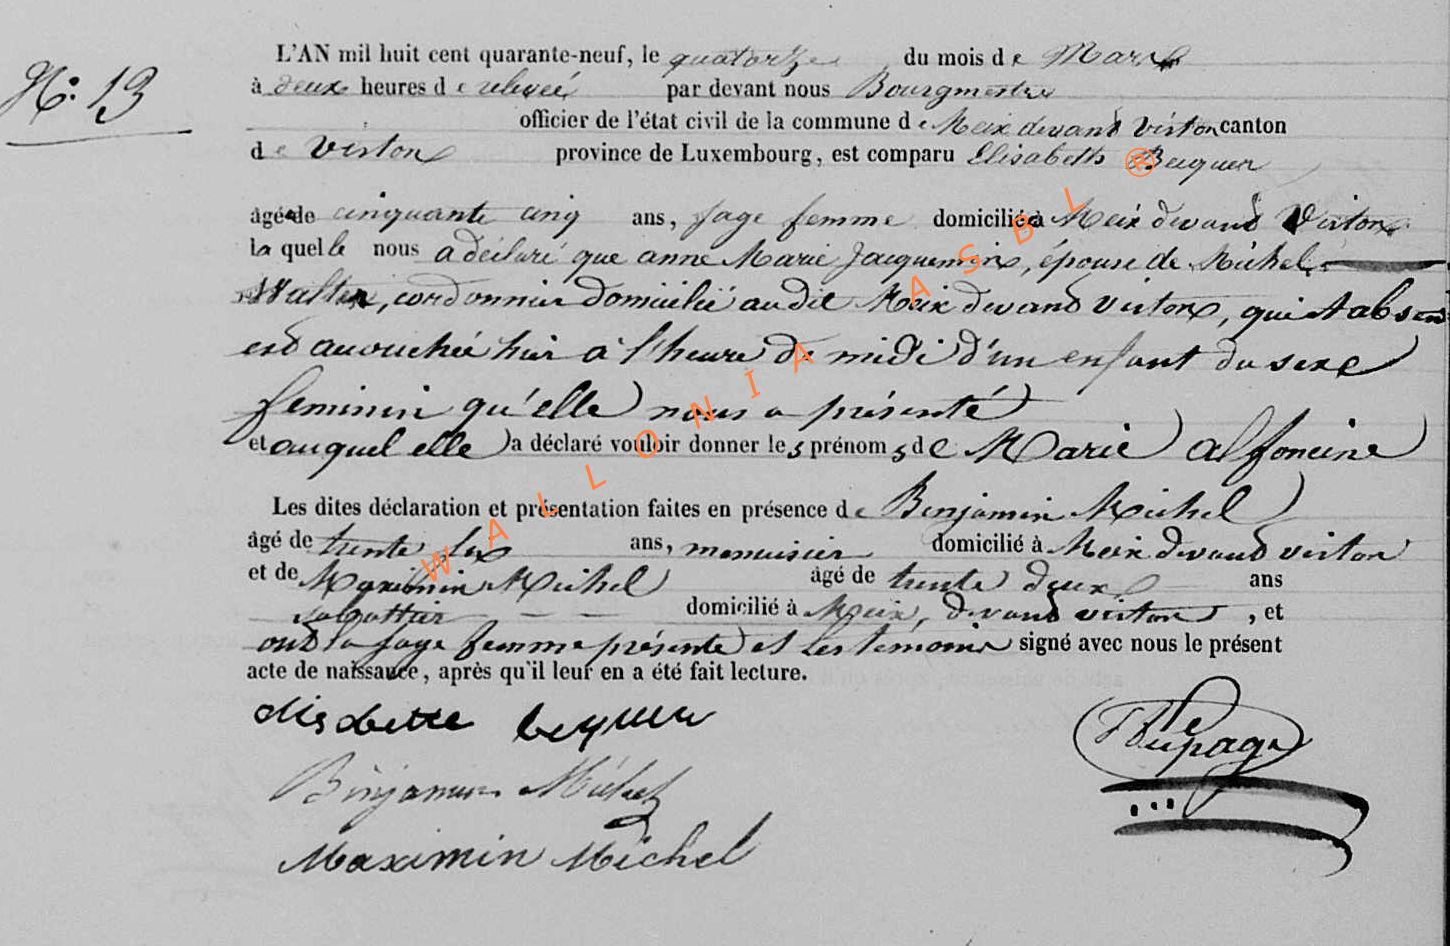 N.° 13
L'AN mil huit cent quarante-neuf, le quatorze du mois de Mars
à deux heures de relevée par devant nous Bourgmestre
officier de l'état civil de la commune de Meix devant virton canton
de Virton province de Luxembourg, est comparu Elisabeth Bequer
âgée de cinquante cinq ans, sage femme domiciliée à Meix devant Virton
laquelle nous a déclaré que anne Marie Jacquemin, épouse de Michel
Walter, cordonnier domicilié audit Meix devant virton, qui est absent
est accouchée hier à l'heure de midi d'un enfant du sexe
feminin qu'elle nous a présenté
et auquel elle a déclaré vouloir donner les prénoms de Marie alfoncine
Les dites déclaration et présentation faites en présence de Benjamin Michel
âgé de trente ans, menuisier domicilié à Meix devant virton
et de Maximin Michel âgé de trente deux ans
sabottier domicilié à Meix, devant virton, et
ont la sage femme présente et les temoins signé avec nous le présent
acte de naissance, après qu'il leur en a été fait lecture.
elisabette bequer
Benjamin Michel
Maximin Michel
Lepage
WALLONIA ASBL ®